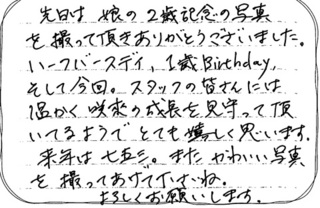 先日は 娘の2歳記念の写真
を撮って頂きありがとうございました。
ハーフバースデイ, 1歳Birthday,
そして今回。スタッフの皆さんには
温かく 咲来の成長を見守って頂
いてるようで とても 嬉しく思います。
来年は七五三。また かわいい写真
を 撮ってあげて下さいね。
よろしくお願いします。